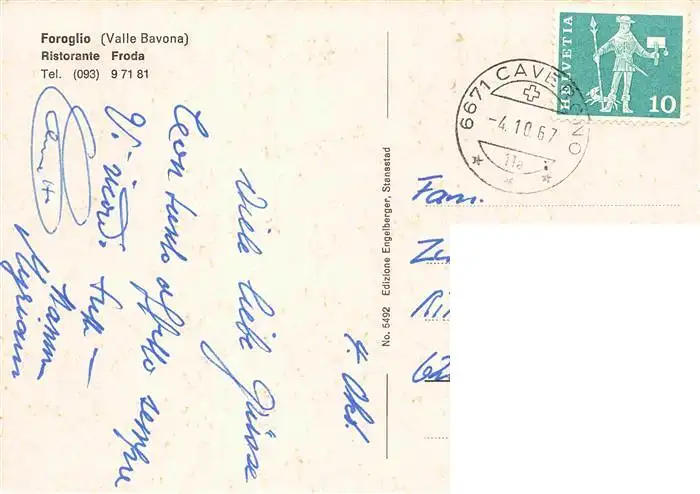 Foroglio (Valle Bavona)
Ristorante Froda
Tel. (093) 9 71 81
HELVETIA
10
6671 CAVERGNO
-4.10.67
11a
No. 5492 Edizione Engelberger, Stansstad
4. Okt.
Viele liebe Grüsse
Con tanto affetto sempre
Vi ricordo tutti —
Mamma
Myriam
Fam.